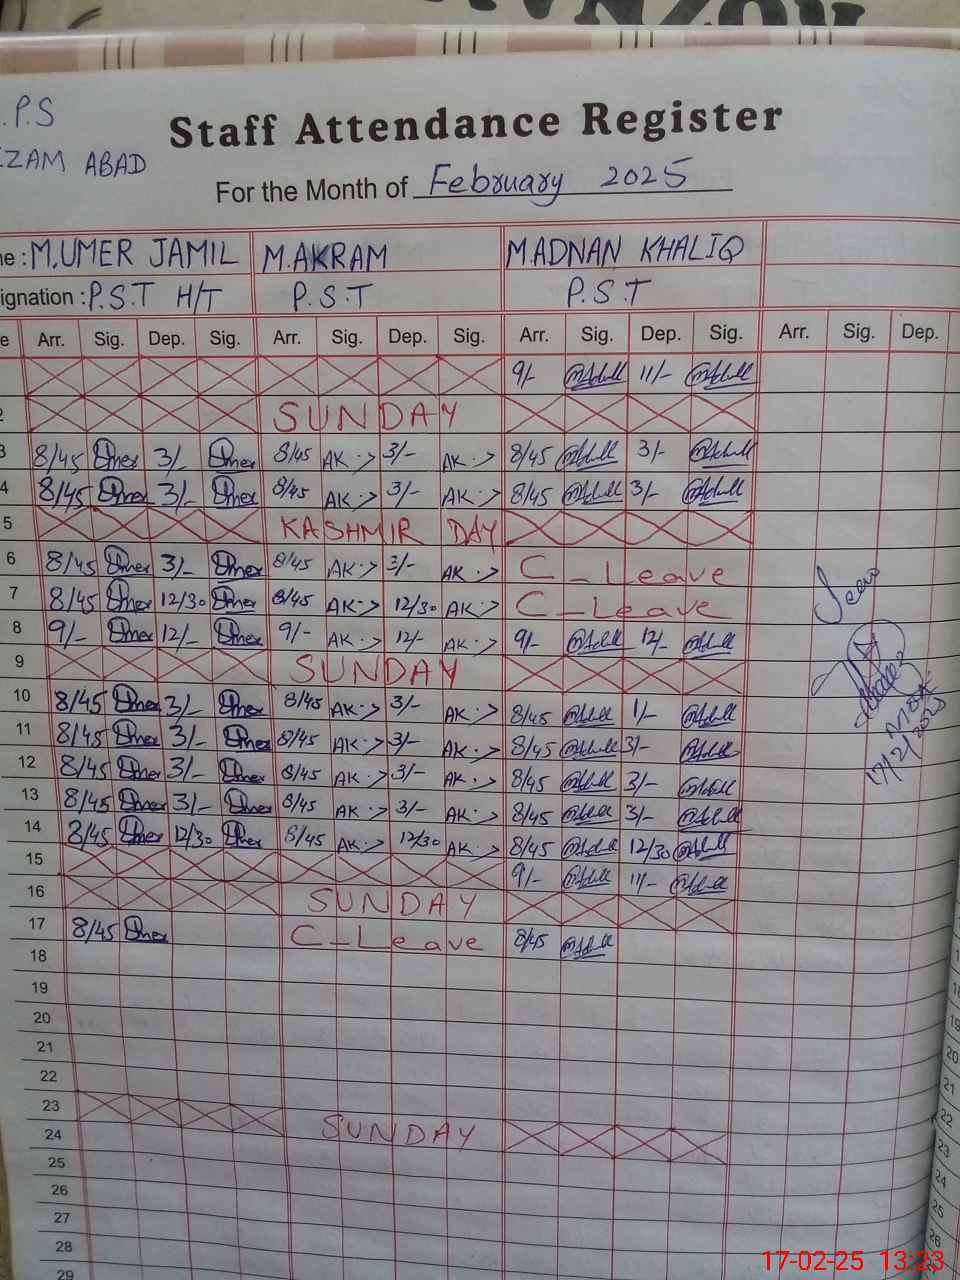 .P.S
IZAM ABAD
Staff Attendance Register
For the Month of February 2025
ne : M.UMER JAMIL M.AKRAM M.ADNAN KHALIQ
ignation : P.S.T H/T P.S.T P.S.T
e Arr. Sig. Dep. Sig. Arr. Sig. Dep. Sig. Arr. Sig. Dep. Sig. Arr. Sig. Dep.
9/- 11/-
2 SUNDAY
3 8/45 Omer 3/- Omer 8/45 AK 3/- AK 8/45 3/-
4 8/45 Omer 3/- Omer 8/45 AK 3/- AK 8/45 3/-
5 KASHMIR DAY
6 8/45 Omer 3/- Omer 8/45 AK 3/- AK C-Leave
7 8/45 Omer 12/30 Omer 8/45 AK 12/30 AK C-Leave
8 9/- Omer 12/- Omer 9/- AK 12/- AK 9/- 12/-
9 SUNDAY
10 8/45 Omer 3/- Omer 8/45 AK 3/- AK 8/45 1/-
11 8/45 Omer 3/- Omer 8/45 AK 3/- AK 8/45 3/-
12 8/45 Omer 3/- Omer 8/45 AK 3/- AK 8/45 3/-
13 8/45 Omer 3/- Omer 8/45 AK 3/- AK 8/45 3/-
14 8/45 Omer 12/30 Omer 8/45 AK 12/30 AK 8/45 12/30
15 9/- 11/-
16 SUNDAY
17 8/45 Omer C-Leave 8/45
18
19
20
21
22
23 SUNDAY
24
25
26
27
28
29
Seen
17/2/2025
19
20
21
22
23
24
25
26
17-02-25 13:23